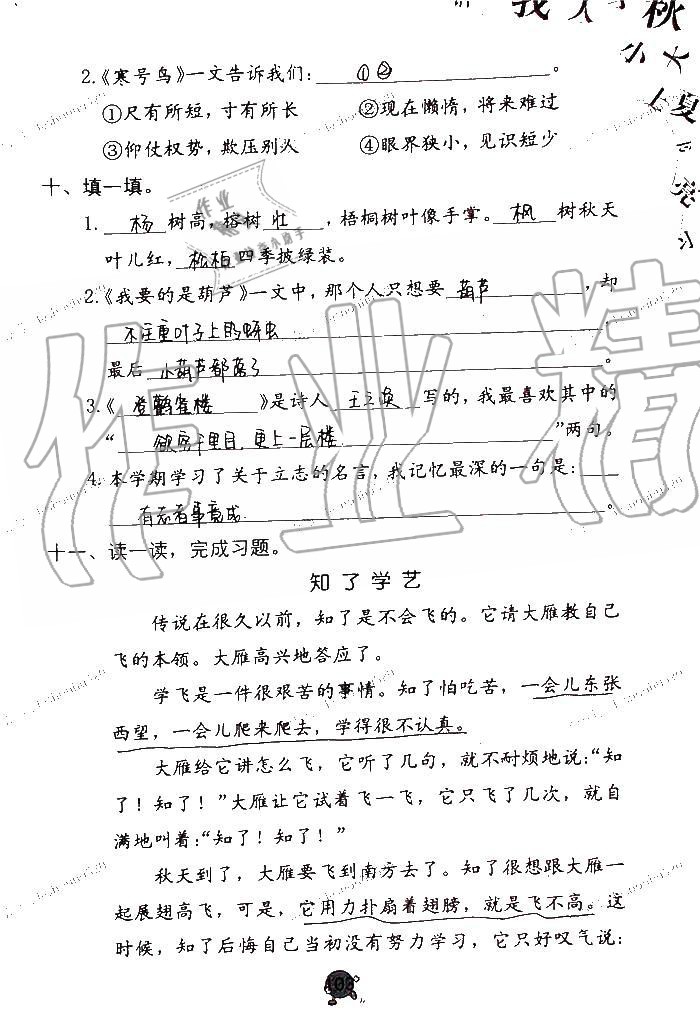 我
秋
大
夏
2.《寒号鸟》一文告诉我们：①②。
①尺有所短，寸有所长 ②现在懒惰，将来难过
③仰仗权势，欺压别人 ④眼界狭小，见识短少
十、填一填。
1. 杨树高，榕树壮，梧桐树叶像手掌。枫树秋天
叶儿红，松柏四季披绿装。
2.《我要的是葫芦》一文中，那个人只想要葫芦，却
不注重叶子上的蚜虫
最后小葫芦都落了。
3.《登鹳雀楼》是诗人王之涣写的，我最喜欢其中的
“欲穷千里目，更上一层楼”两句。
4. 本学期学习了关于立志的名言，我记忆最深的一句是：
有志者事竟成。
十一、读一读，完成习题。
知了学艺
传说在很久以前，知了是不会飞的。它请大雁教自己
飞的本领。大雁高兴地答应了。
学飞是一件很艰苦的事情。知了怕吃苦，一会儿东张
西望，一会儿爬来爬去，学得很不认真。
大雁给它讲怎么飞，它听了几句，就不耐烦地说：“知
了！知了！”大雁让它试着飞一飞，它只飞了几次，就自
满地叫着：“知了！知了！”
秋天到了，大雁要飞到南方去了。知了很想跟大雁一
起展翅高飞，可是，它用力扑扇着翅膀，就是飞不高。这
时候，知了后悔自己当初没有努力学习，它只好叹气说：
作业精